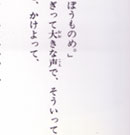 ぼうものめ。」
ぎって大きな声で、そういって
、かけよって、